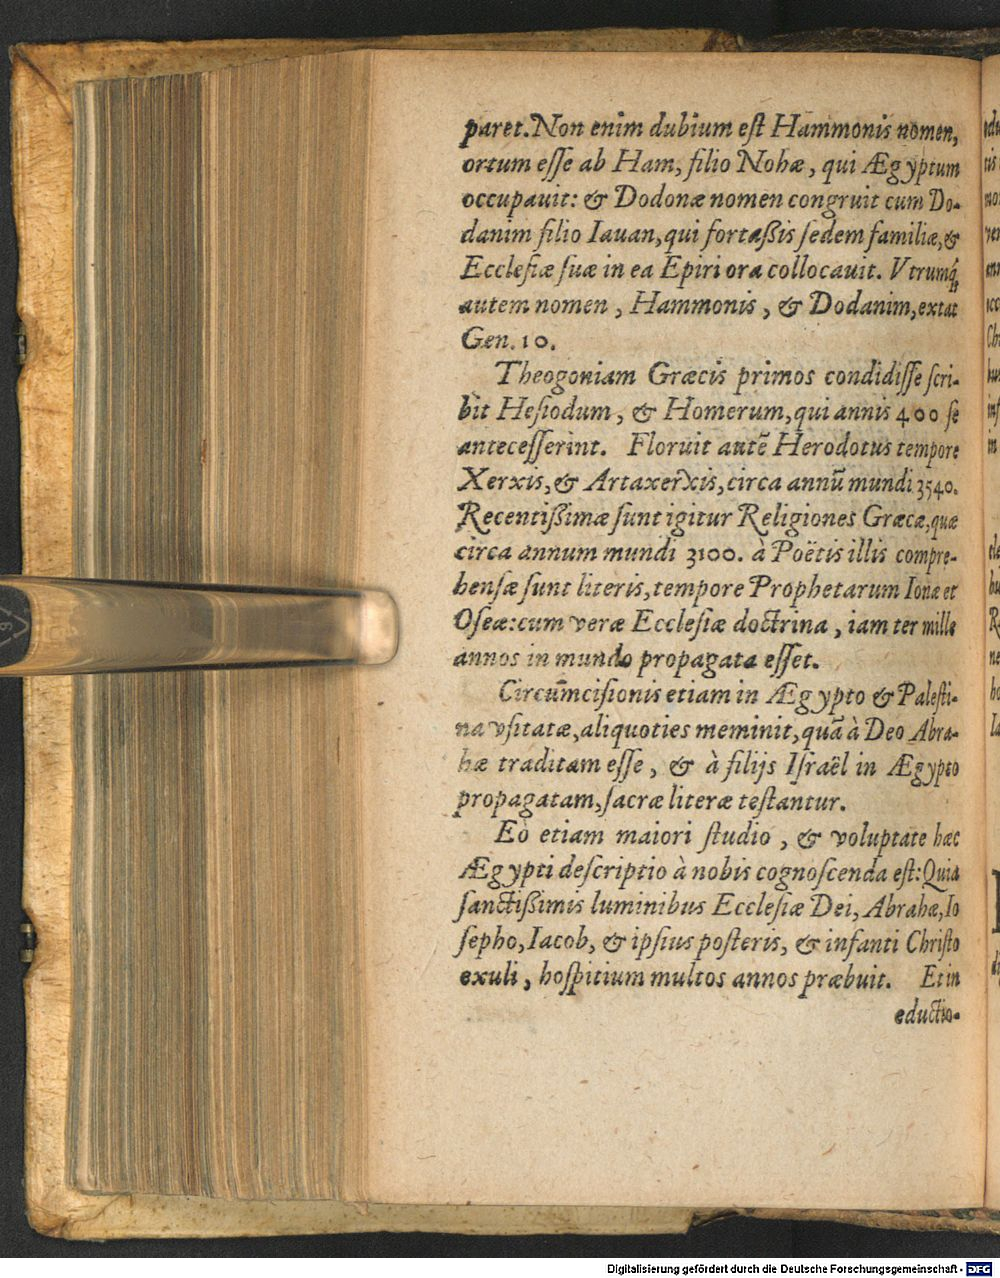 paret. Non enim dubium est Hammonis nomen,
ortum esse ab Ham, filio Nohæ, qui Ægyptum
occupauit: & Dodonæ nomen congruit cum Do-
danim filio Iauan, qui fortaßis sedem familiæ, &
Ecclesiæ suæ in ea Epiri ora collocauit. Vtrumq́
autem nomen, Hammonis, & Dodanim, extat
Gen. 10.
Theogoniam Græcis primos condidisse scri-
bit Hesiodum, & Homerum, qui annis 400 se
antecesserint. Floruit autẽ Herodotus tempore
Xerxis, & Artaxerxis, circa annũ mundi 3540.
Recentißimæ sunt igitur Religiones Græcæ, quæ
circa annum mundi 3100. à Poëtis illis compre-
hensæ sunt literis, tempore Prophetarum Ionæ et
Oseæ: cum veræ Ecclesiæ doctrina, iam ter mille
annos in mundo propagata esset.
Circumcisionis etiam in Ægypto & Palesti-
na vsitatæ, aliquoties meminit, quã à Deo Abra-
hæ traditam esse, & à filijs Israël in Ægypto
propagatam, sacræ literæ testantur.
Eò etiam maiori studio, & voluptate hæc
Ægypti descriptio à nobis cognoscenda est: Quia
sanctißimis luminibus Ecclesiæ Dei, Abrahæ, Io
sepho, Iacob, & ipsius posteris, & infanti Christo
exuli, hospitium multos annos præbuit. Et in
eductio-
Digitalisierung gefördert durch die Deutsche Forschungsgemeinschaft - DFG